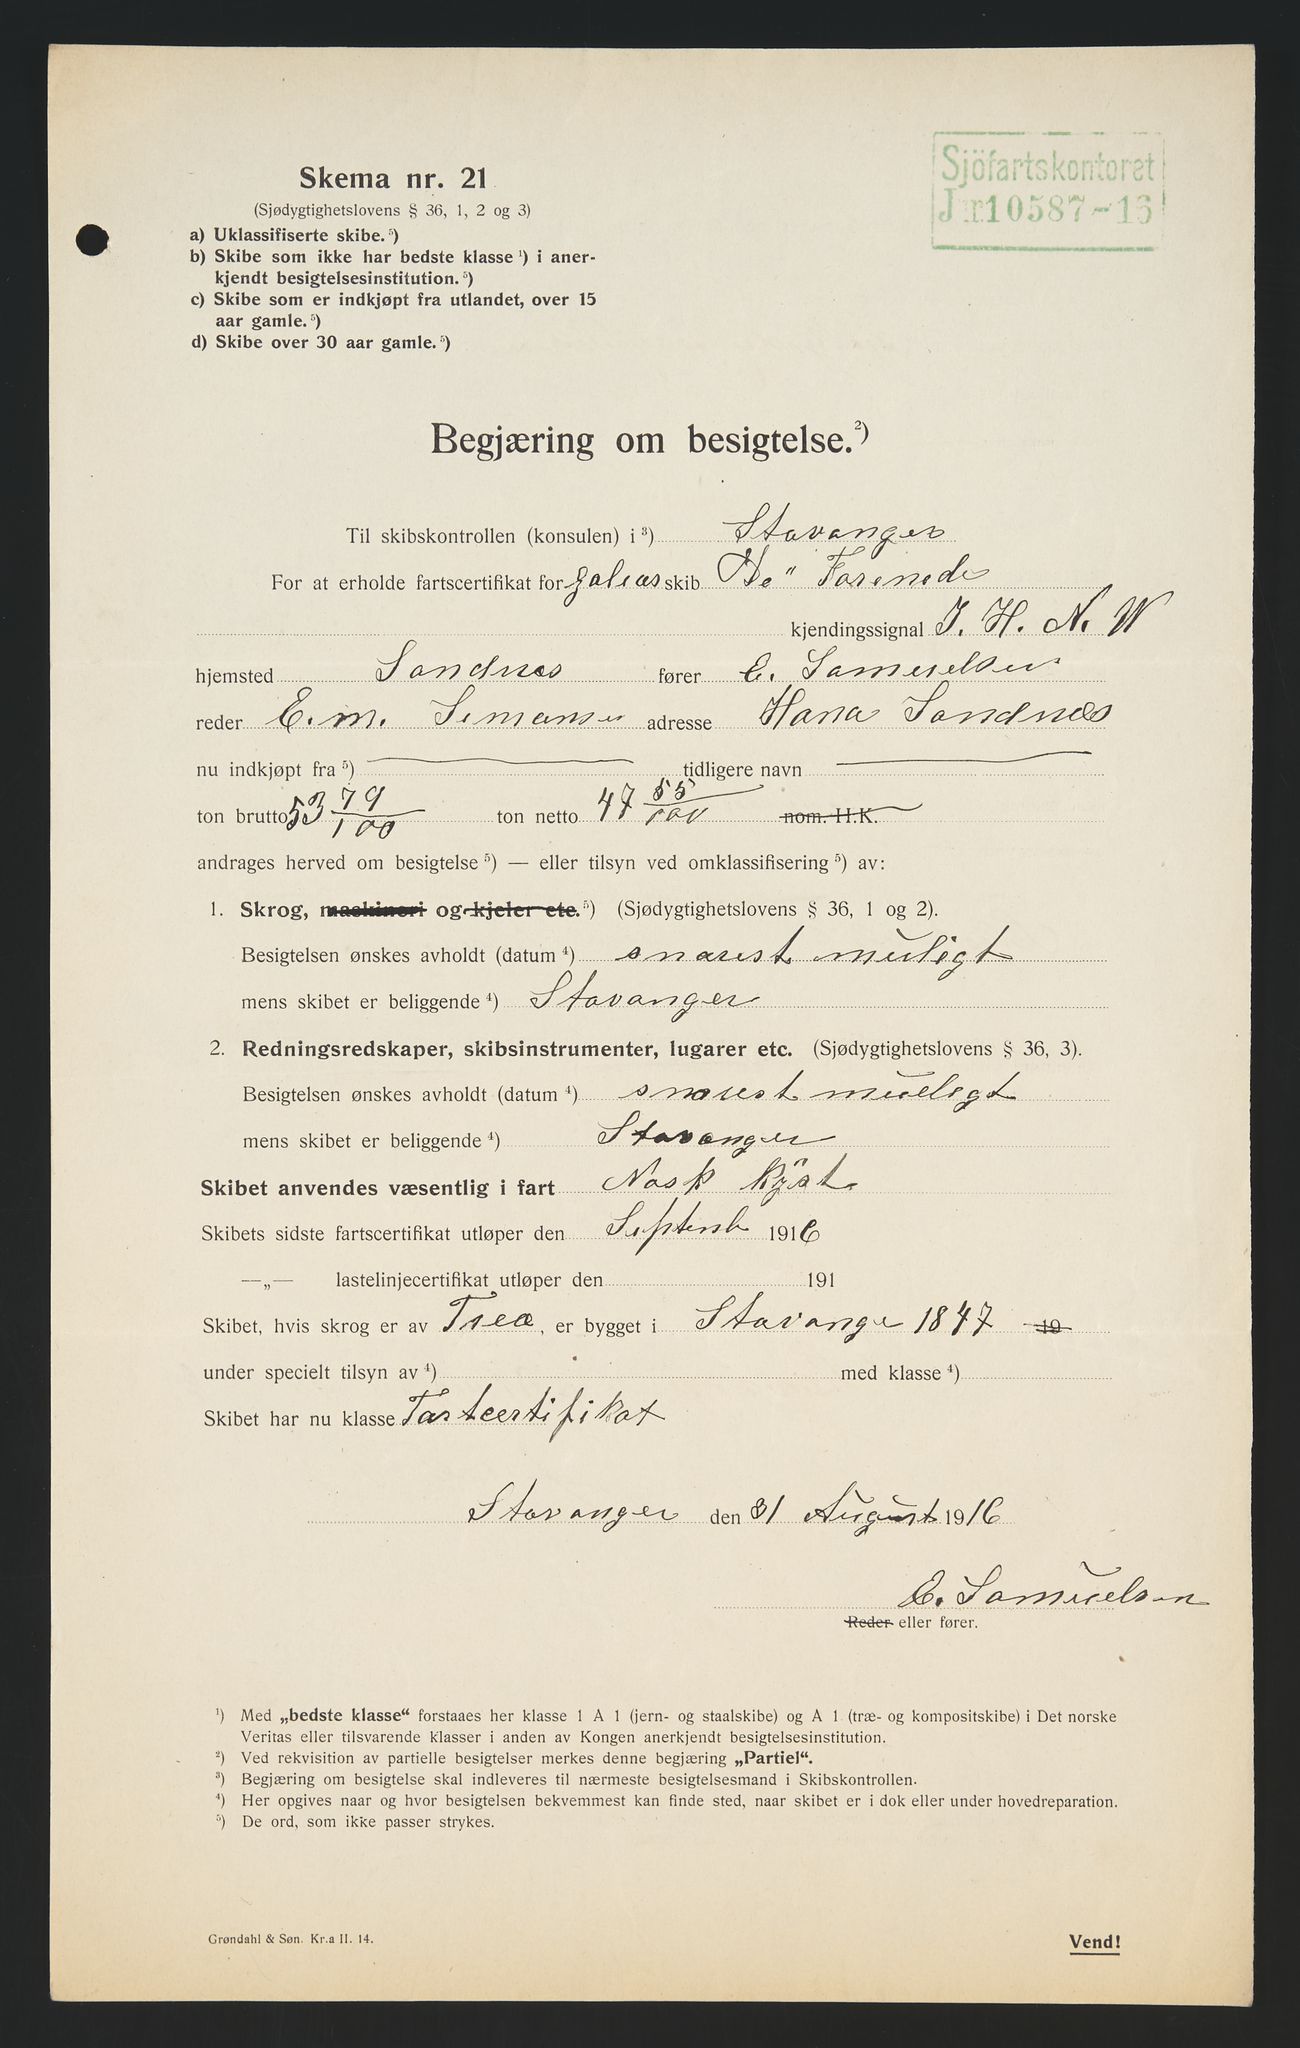 Sjöfartskontoret
J nr 10587-16
Skema nr. 21
(Sjødygtighetslovens § 36, 1, 2 og 3)
a) Uklassifiserte skibe.⁵)
b) Skibe som ikke har bedste klasse¹) i aner-
kjendt besigtelsesinstitution.⁵)
c) Skibe som er indkjøpt fra utlandet, over 15
aar gamle.⁵)
d) Skibe over 30 aar gamle.⁵)
Begjæring om besigtelse.²)
Til skibskontrollen (konsulen) i³) Stavanger
For at erholde fartscertifikat for galeas skib "De" Forenede
kjendingssignal J. H. N. W
hjemsted Sandnes fører E. Samuelsen
reder E. M. adresse Hana Sandnes
nu indkjøpt fra⁵) tidligere navn
ton brutto 53 79/100 ton netto 47 55/100 nom. H.K.
andrages herved om besigtelse⁵) — eller tilsyn ved omklassifisering⁵) av:
1. Skrog, maskineri og kjeler etc.⁵) (Sjødygtighetslovens § 36, 1 og 2).
Besigtelsen ønskes avholdt (datum⁴) snarest muligt
mens skibet er beliggende⁴) Stavanger
2. Redningsredskaper, skibsinstrumenter, lugarer etc. (Sjødygtighetslovens § 36, 3).
Besigtelsen ønskes avholdt (datum⁴) snarest mueligt
mens skibet er beliggende⁴) Stavanger
Skibet anvendes væsentlig i fart Nosk Kyst
Skibets sidste fartscertifikat utløper den Septemb 1916
—„— lastelinjecertifikat utløper den 191
Skibet, hvis skrog er av Træ, er bygget i Stavange 1847 19
under specielt tilsyn av⁴) med klasse⁴)
Skibet har nu klasse Fartcertifikat
Stavanger den 31 August 1916
E. Samuelsen
Reder eller fører.
¹) Med „bedste klasse“ forstaaes her klasse 1 A 1 (jern- og staalskibe) og A 1 (træ- og kompositskibe) i Det norske
Veritas eller tilsvarende klasser i anden av Kongen anerkjendt besigtelsesinstitution.
²) Ved rekvisition av partielle besigtelser merkes denne begjæring „Partiel“.
³) Begjæring om besigtelse skal indleveres til nærmeste besigtelsesmand i Skibskontrollen.
⁴) Her opgives naar og hvor besigtelsen bekvemmest kan finde sted, naar skibet er i dok eller under hovedreparation.
⁵) De ord, som ikke passer strykes.
Grøndahl & Søn. Kr.a II. 14.
Vend!